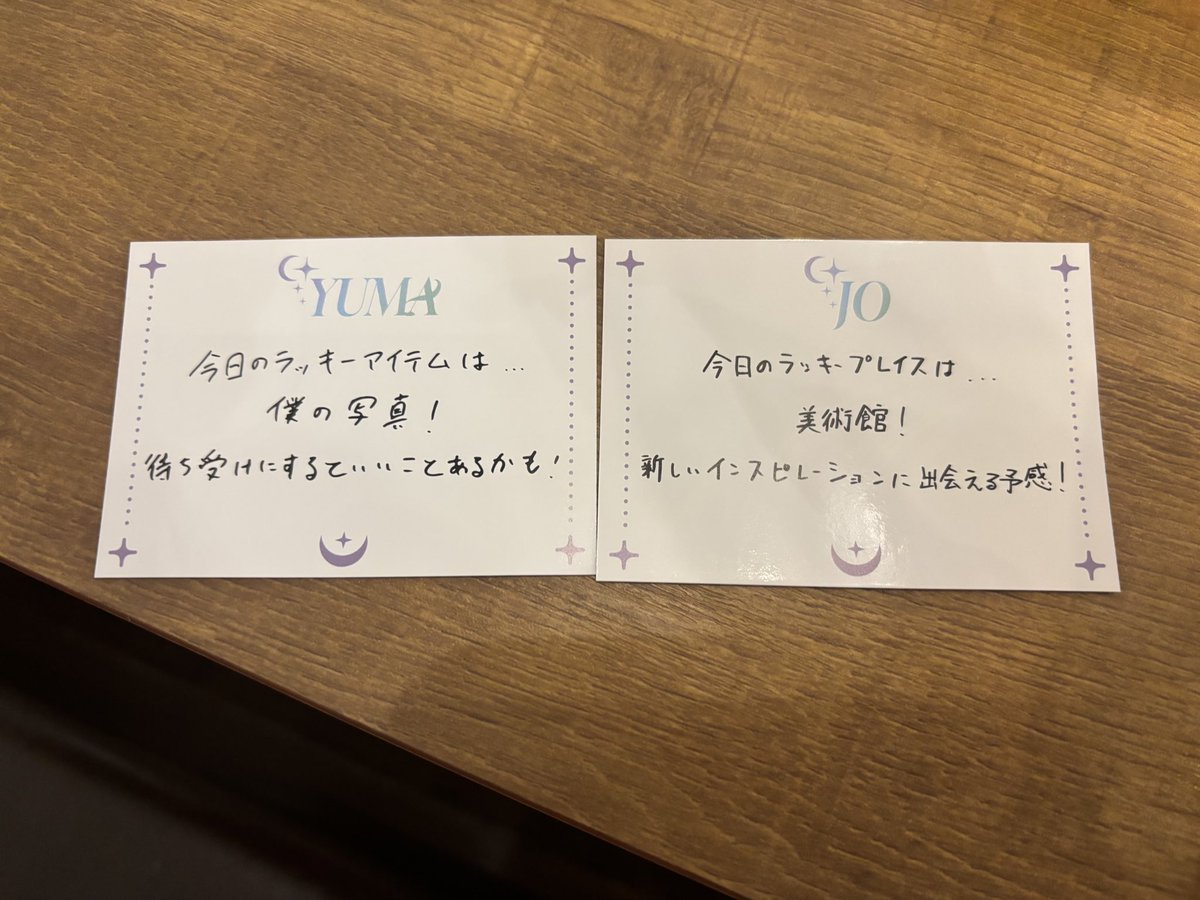 YUMA
今日のラッキーアイテムは...
僕の写真!
待ち受けにするといいことあるかも!
JO
今日のラッキープレイスは...
美術館!
新しいインスピレーションに出会える予感!